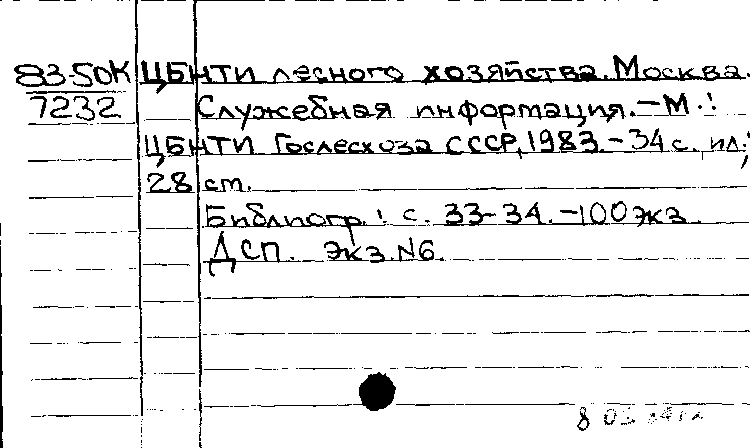 83-50К ЦБНТИ лесного хозяйства. Москва.
7232 Служебная информация. - М.:
ЦБНТИ Гослесхоза СССР, 1983. - 34 с., ил.;
28 ст.
Библиогр.: с. 33-34. - 100 экз.
ДСП. Экз. N6.
8 03